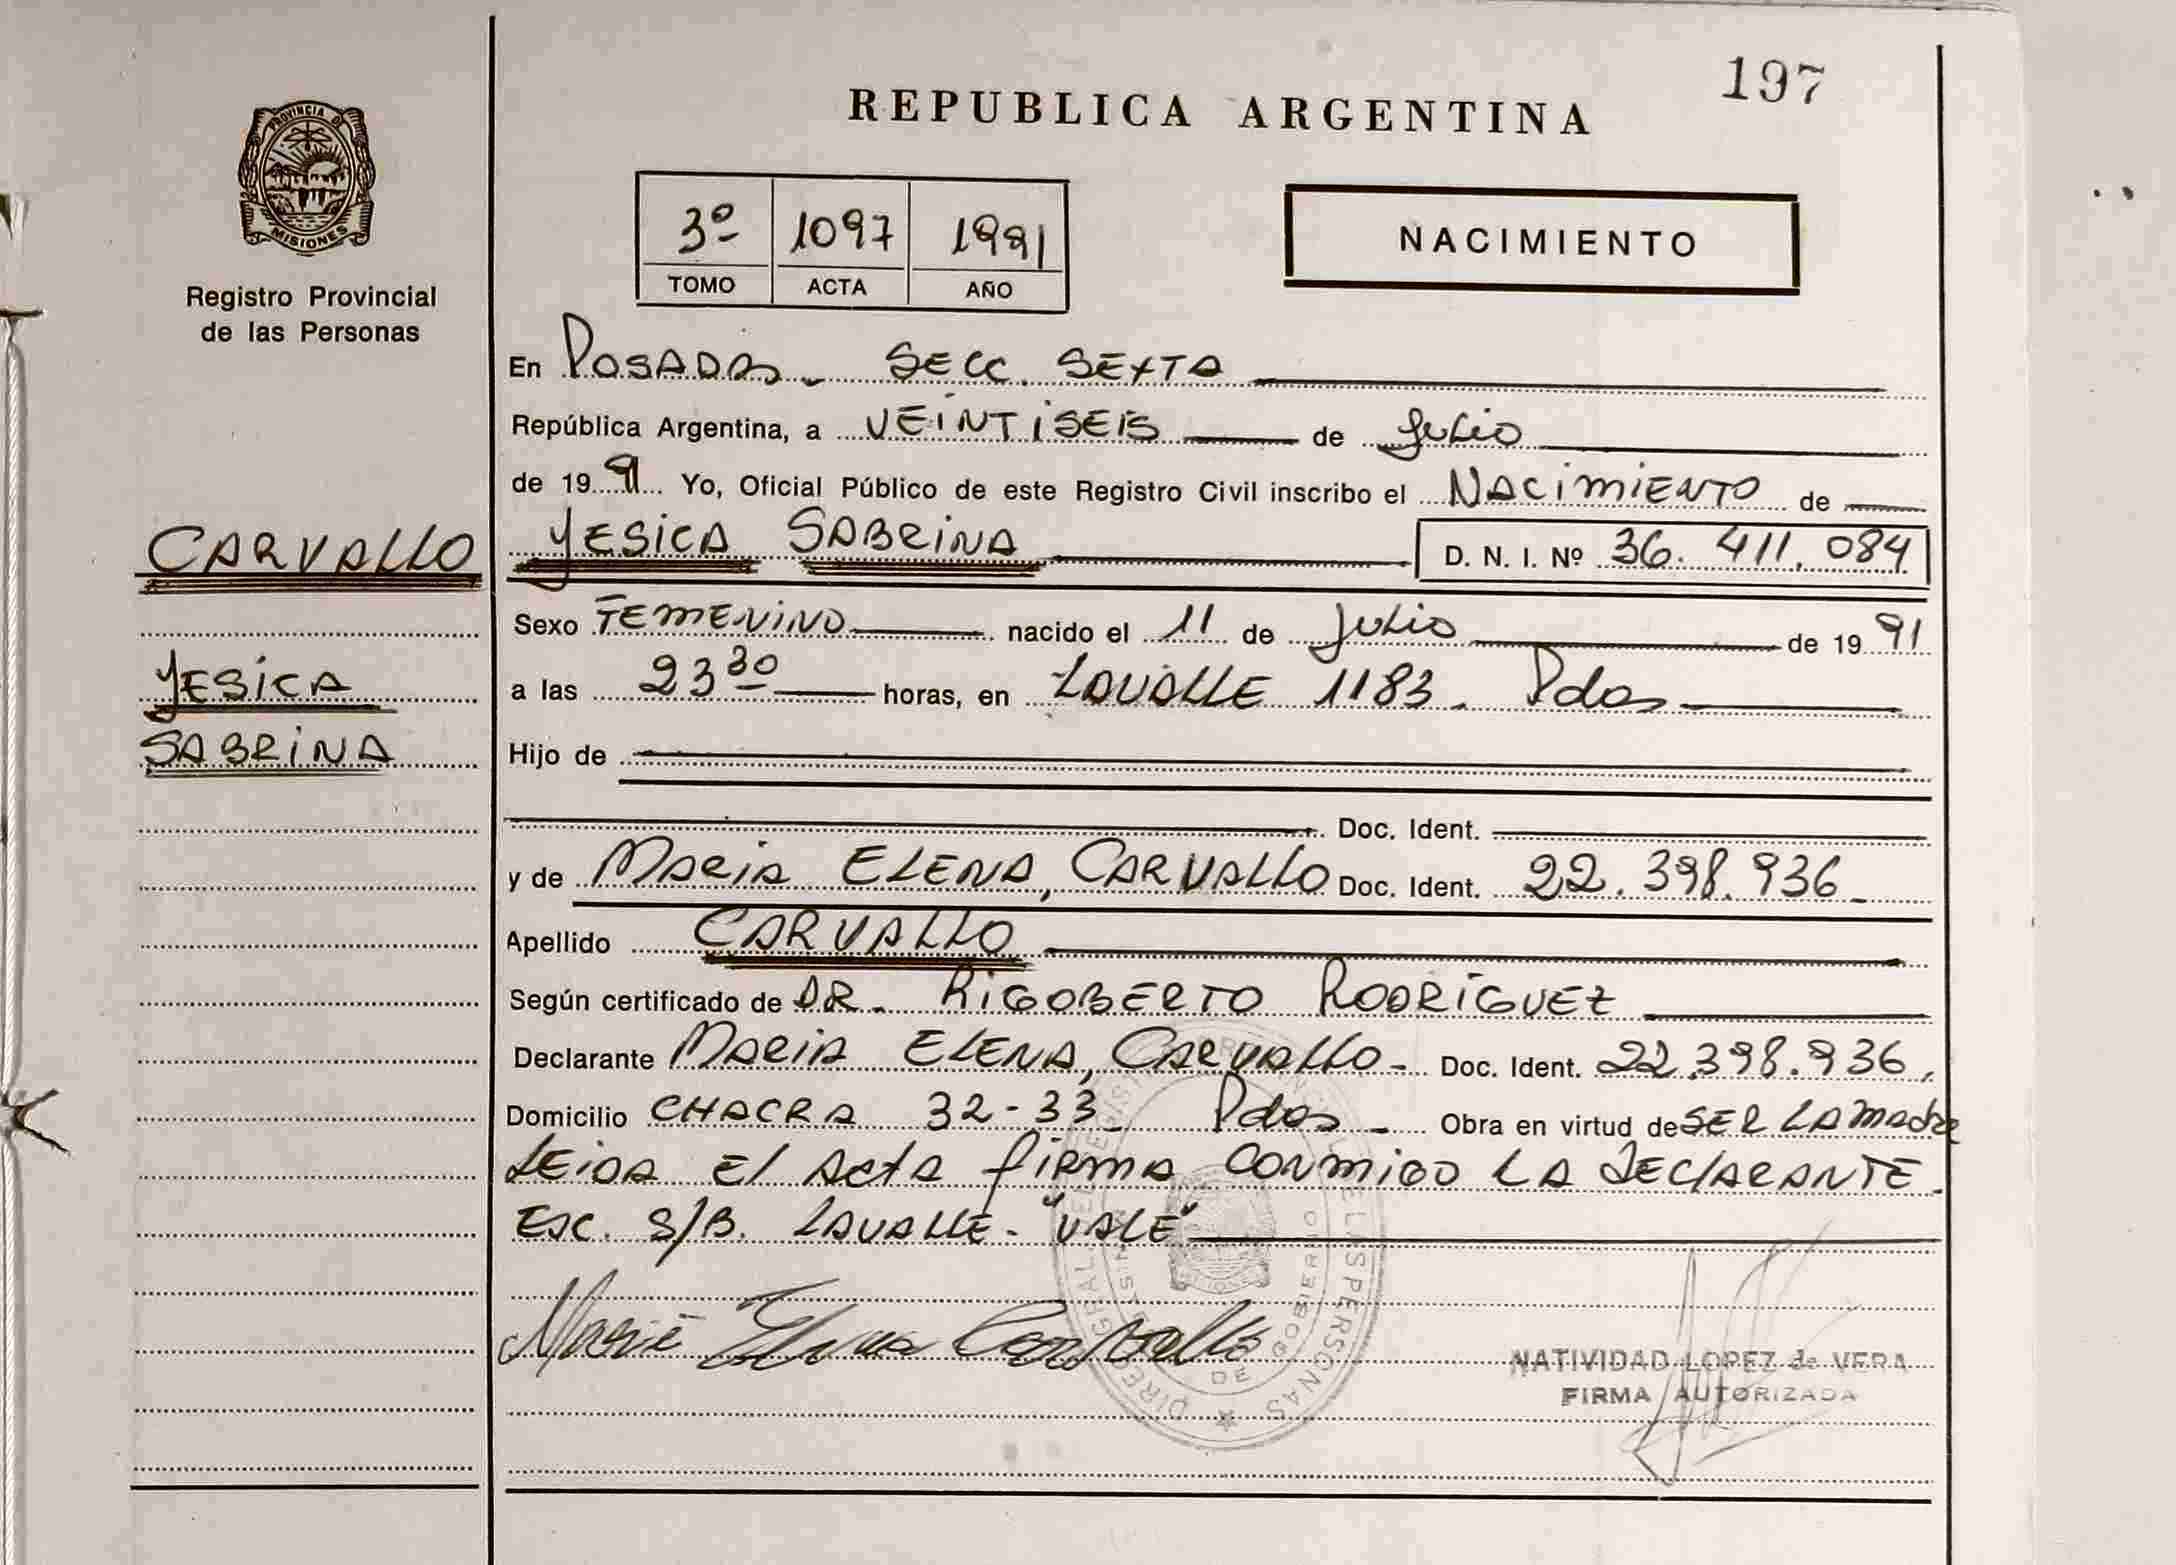 197
REPUBLICA ARGENTINA
PROVINCIA DE
MISIONES
Registro Provincial
de las Personas
3º 1097 1991
TOMO ACTA AÑO
NACIMIENTO
En POSADAS - SECC. SEXTA
República Argentina, a VEINTISEIS de JULIO
de 1991 Yo, Oficial Público de este Registro Civil inscribo el NACIMIENTO de
CARVALLO
YESICA SABRINA D. N. I. Nº 36.411.084
Sexo FEMENINO nacido el 11 de JULIO de 1991
YESICA
a las 23 30 horas, en LAVALLE 1183. Pdas
SABRINA
Hijo de
Doc. Ident.
y de MARIA ELENA, CARVALLO Doc. Ident. 22.398.936
Apellido CARVALLO
Según certificado de DR. RIGOBERTO RODRIGUEZ
Declarante MARIA ELENA, CARVALLO - Doc. Ident. 22.398.936.
Domicilio CHACRA 32-33 Pdas - Obra en virtud de SER LA MADRE
LEIDA El ActA fIRMA CONMIGO LA DEClARANTE.
ESC. S/B. LAVALLE - "VALE"
Maria Elena Carvallo
NATIVIDAD LOPEZ de VERA
FIRMA AUTORIZADA